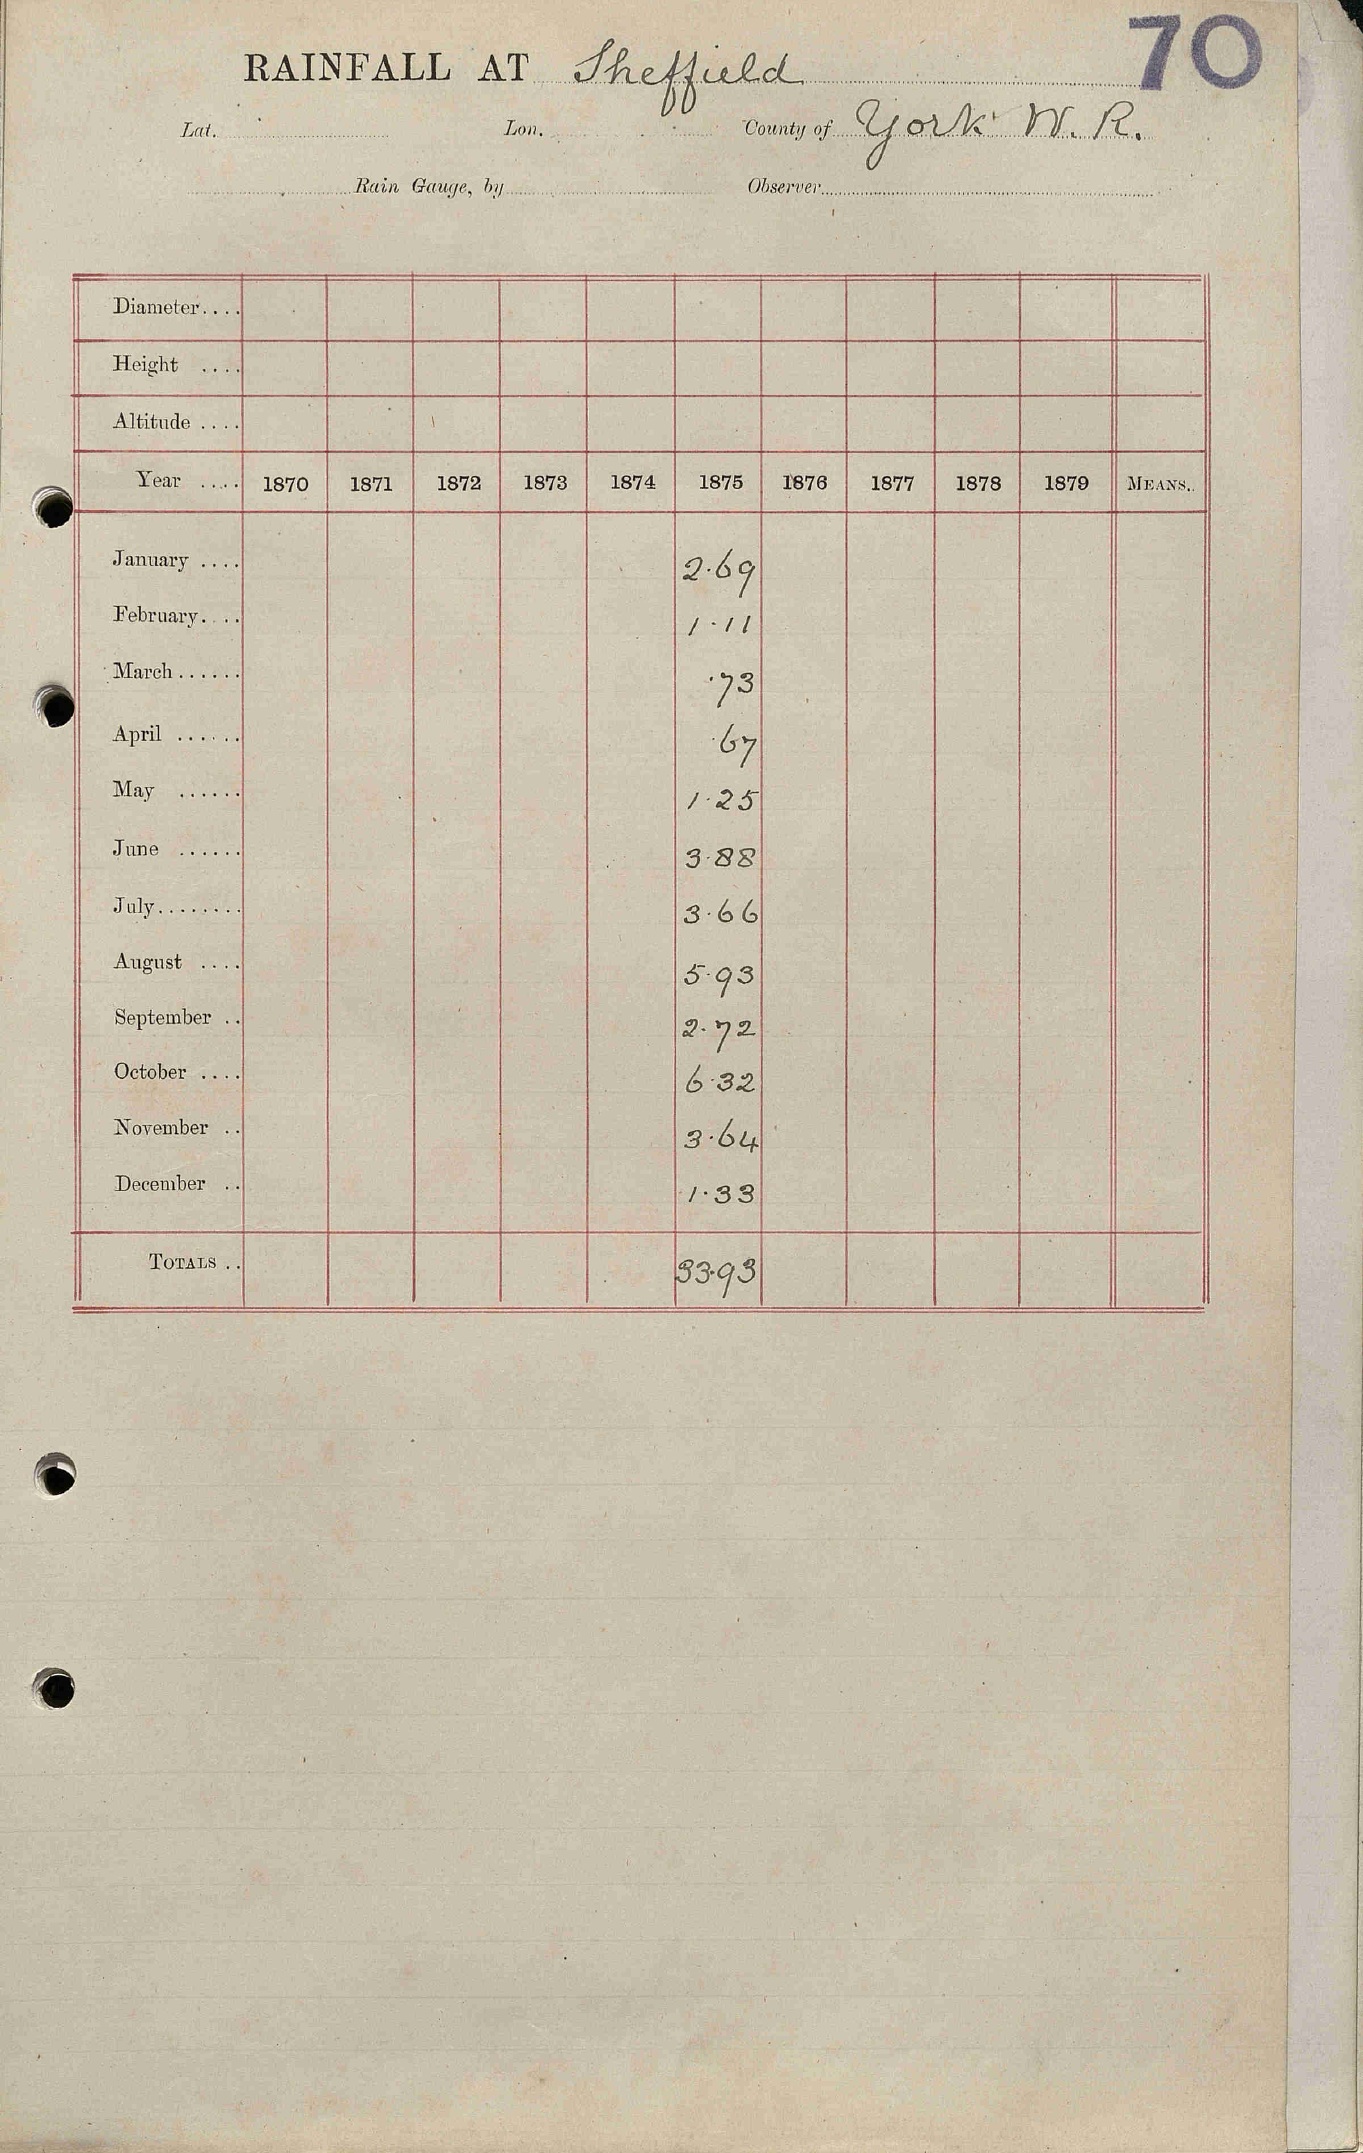 70
RAINFALL AT Sheffield
Lat. Lon. County of York W. R.
Rain Gauge, by Observer
Diameter....
Height ....
Altitude ....
Year .... 1870 1871 1872 1873 1874 1875 1876 1877 1878 1879 MEANS..
January .... 2.69
February.... 1.11
March...... .73
April ...... .67
May ...... 1.25
June ...... 3.88
July........ 3.66
August .... 5.93
September .. 2.72
October .... 6.32
November .. 3.64
December .. 1.33
TOTALS .. 33.93